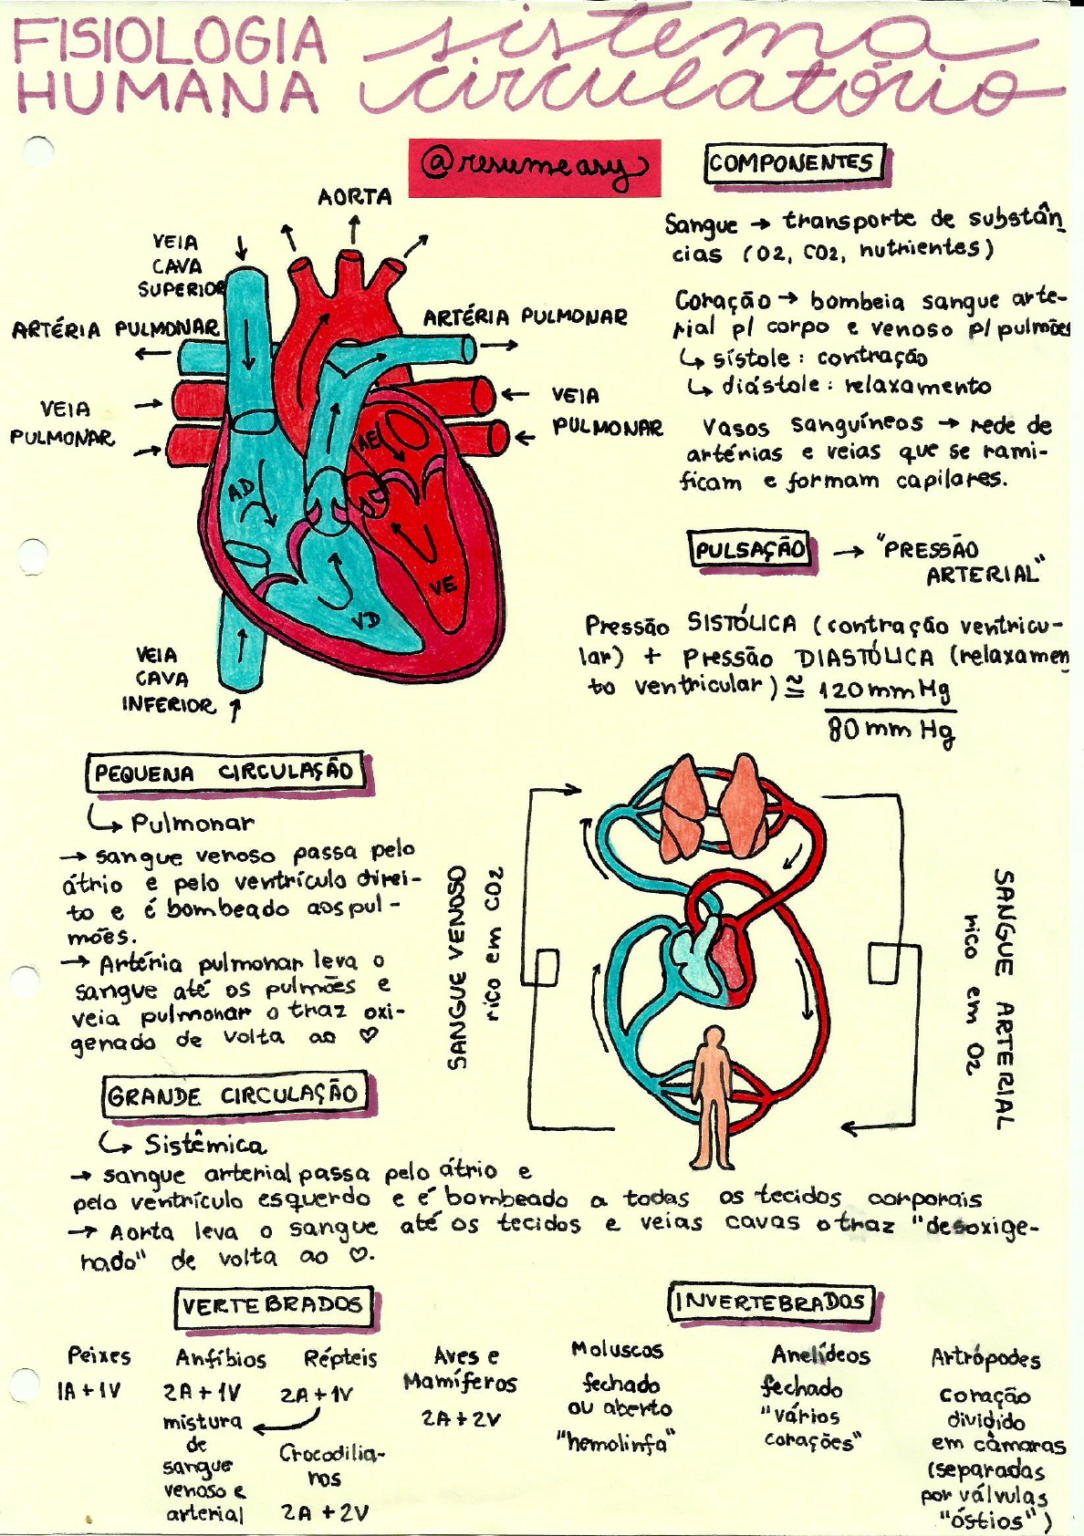 FISIOLOGIA
HUMANA
sistema
circulatório
@resumeasy
AORTA
VEIA
CAVA
SUPERIOR
ARTÉRIA PULMONAR
ARTÉRIA PULMONAR
VEIA
PULMONAR
VEIA
PULMONAR
AD
AE
VE
VD
VEIA
CAVA
INFERIOR
COMPONENTES
Sangue → transporte de substân
cias (O2, CO2, nutrientes)
Coração → bombeia sangue arte-
rial p/ corpo e venoso p/ pulmões
↳ sístole: contração
↳ diástole: relaxamento
Vasos sanguíneos → rede de
artérias e veias que se rami-
ficam e formam capilares.
PULSAÇÃO → "PRESSÃO
ARTERIAL"
Pressão SISTÓLICA (contração ventricu-
lar) + Pressão DIASTÓLICA (relaxamen
to ventricular) ≅ 120 mmHg
80 mm Hg
PEQUENA CIRCULAÇÃO
↳ Pulmonar
→ sangue venoso passa pelo
átrio e pelo ventrículo direi-
to e é bombeado aos pul-
mões.
→ Artéria pulmonar leva o
sangue até os pulmões e
veia pulmonar o traz oxi-
genado de volta ao ♡
SANGUE VENOSO
rico em CO2
SANGUE ARTERIAL
rico em O2
GRANDE CIRCULAÇÃO
↳ Sistêmica
→ sangue arterial passa pelo átrio e
pelo ventrículo esquerdo e é bombeado a todas os tecidos corporais
→ Aorta leva o sangue até os tecidos e veias cavas o traz "desoxige-
nado" de volta ao ♡.
VERTEBRADOS
Peixes
1A + 1V
Anfíbios
2A + 1V
mistura
de
sangue
venoso e
arterial
Répteis
2A + 1V
Crocodilia-
nos
2A + 2V
Aves e
Mamíferos
2A + 2V
INVERTEBRADOS
Moluscos
fechado
ou aberto
"hemolinfa"
Anelídeos
fechado
"vários
corações"
Artrópodes
coração
dividido
em câmaras
(separadas
por válvulas
"óstios")